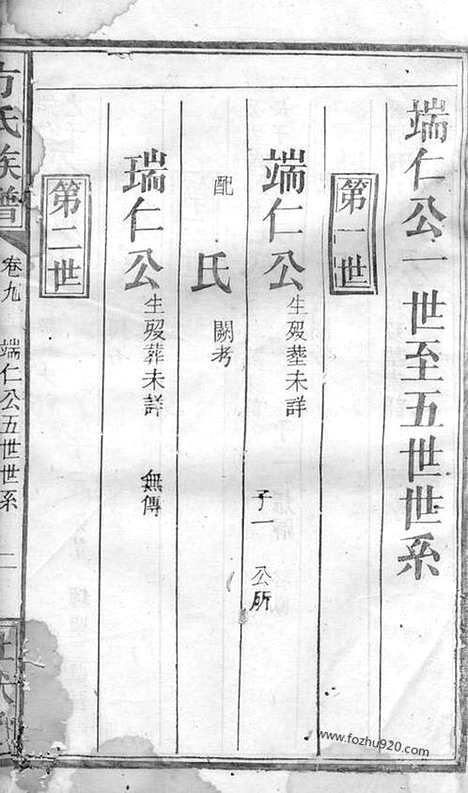 端仁公一世至五世世系
第一世
端仁公生歿塟未詳 子一 公所
配 氏 闕考
瑞仁公生歿葬未詳 無傳
第二世
方氏族譜 卷九 端仁公五世世系 二
www.fozhu920.com